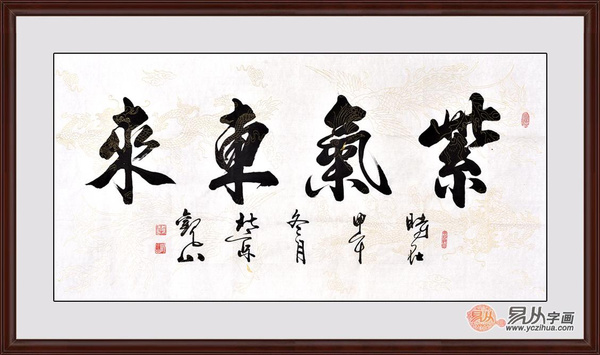 紫氣東來
時在
甲午
冬月
觀山
易从字画
www.yczihua.com